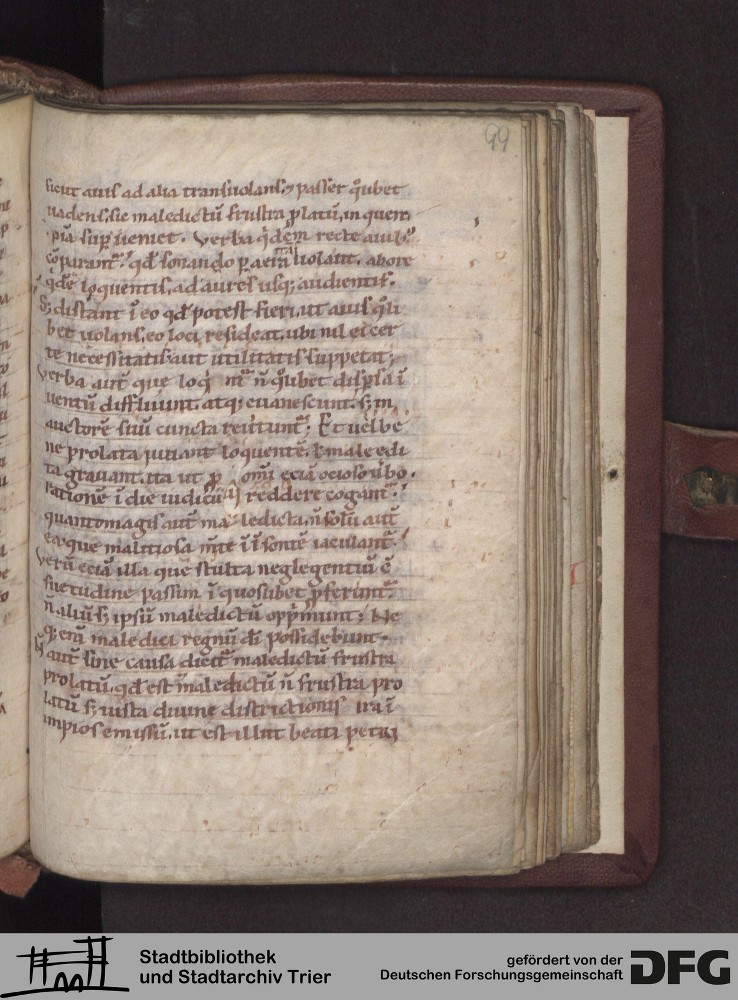 99
sicut auis ad alia transuolans, & passer q̊libet
uadens, sic maledictū frustra platū, in quem
piā sup ueniet. Verba qͥdem recte auib;
cōparant̄. qd̓ sonando p aera uolant. abore
qͥdē loquentis, ad aures usq; audientis.
S; distant ī eo qd̓ potest fieri, ut auis q̊li
bet uolans, eo loci resideat, ubi nil ei cer
te necessitatis aut utilitatis suppetat;
Verba aut̄ que loq̓ n̄ q̊libet dispsa ī
uentū diffluunt. atq; euanescunt. s; in
auctorē suū cuncta reuertunt̄; Et uel be
ne prolata iuuant loquentē. ł male edi
ta grauant. ita ut p omī eciā ocioso ūbo.
rationē ī die iudicii reddere cogant̄.
quanto magis aut̄ maledicta, n̄ solū aut̄
ea que malitiosa m̄te ī īsontē iaculant̄.
Verū eciā illa que stulta neglegentiū c̄
suetudine passim ī quoslibet pferunt̄.
n̄ aliū s; ipsū maledictū opp̓munt; Ne
q; eni maledici regnū dī possidebunt.
Qd̓ aut̄ sine causa dicit̄ maledictū frustra
prolatū, qd̓ est maledictū n̄ frustra pro
latū s; iusta diuine districtionis ira ī
impios emissū, ut est illud beati petri
Stadtbibliothek
und Stadtarchiv Trier
gefördert von der
Deutschen Forschungsgemeinschaft
DFG